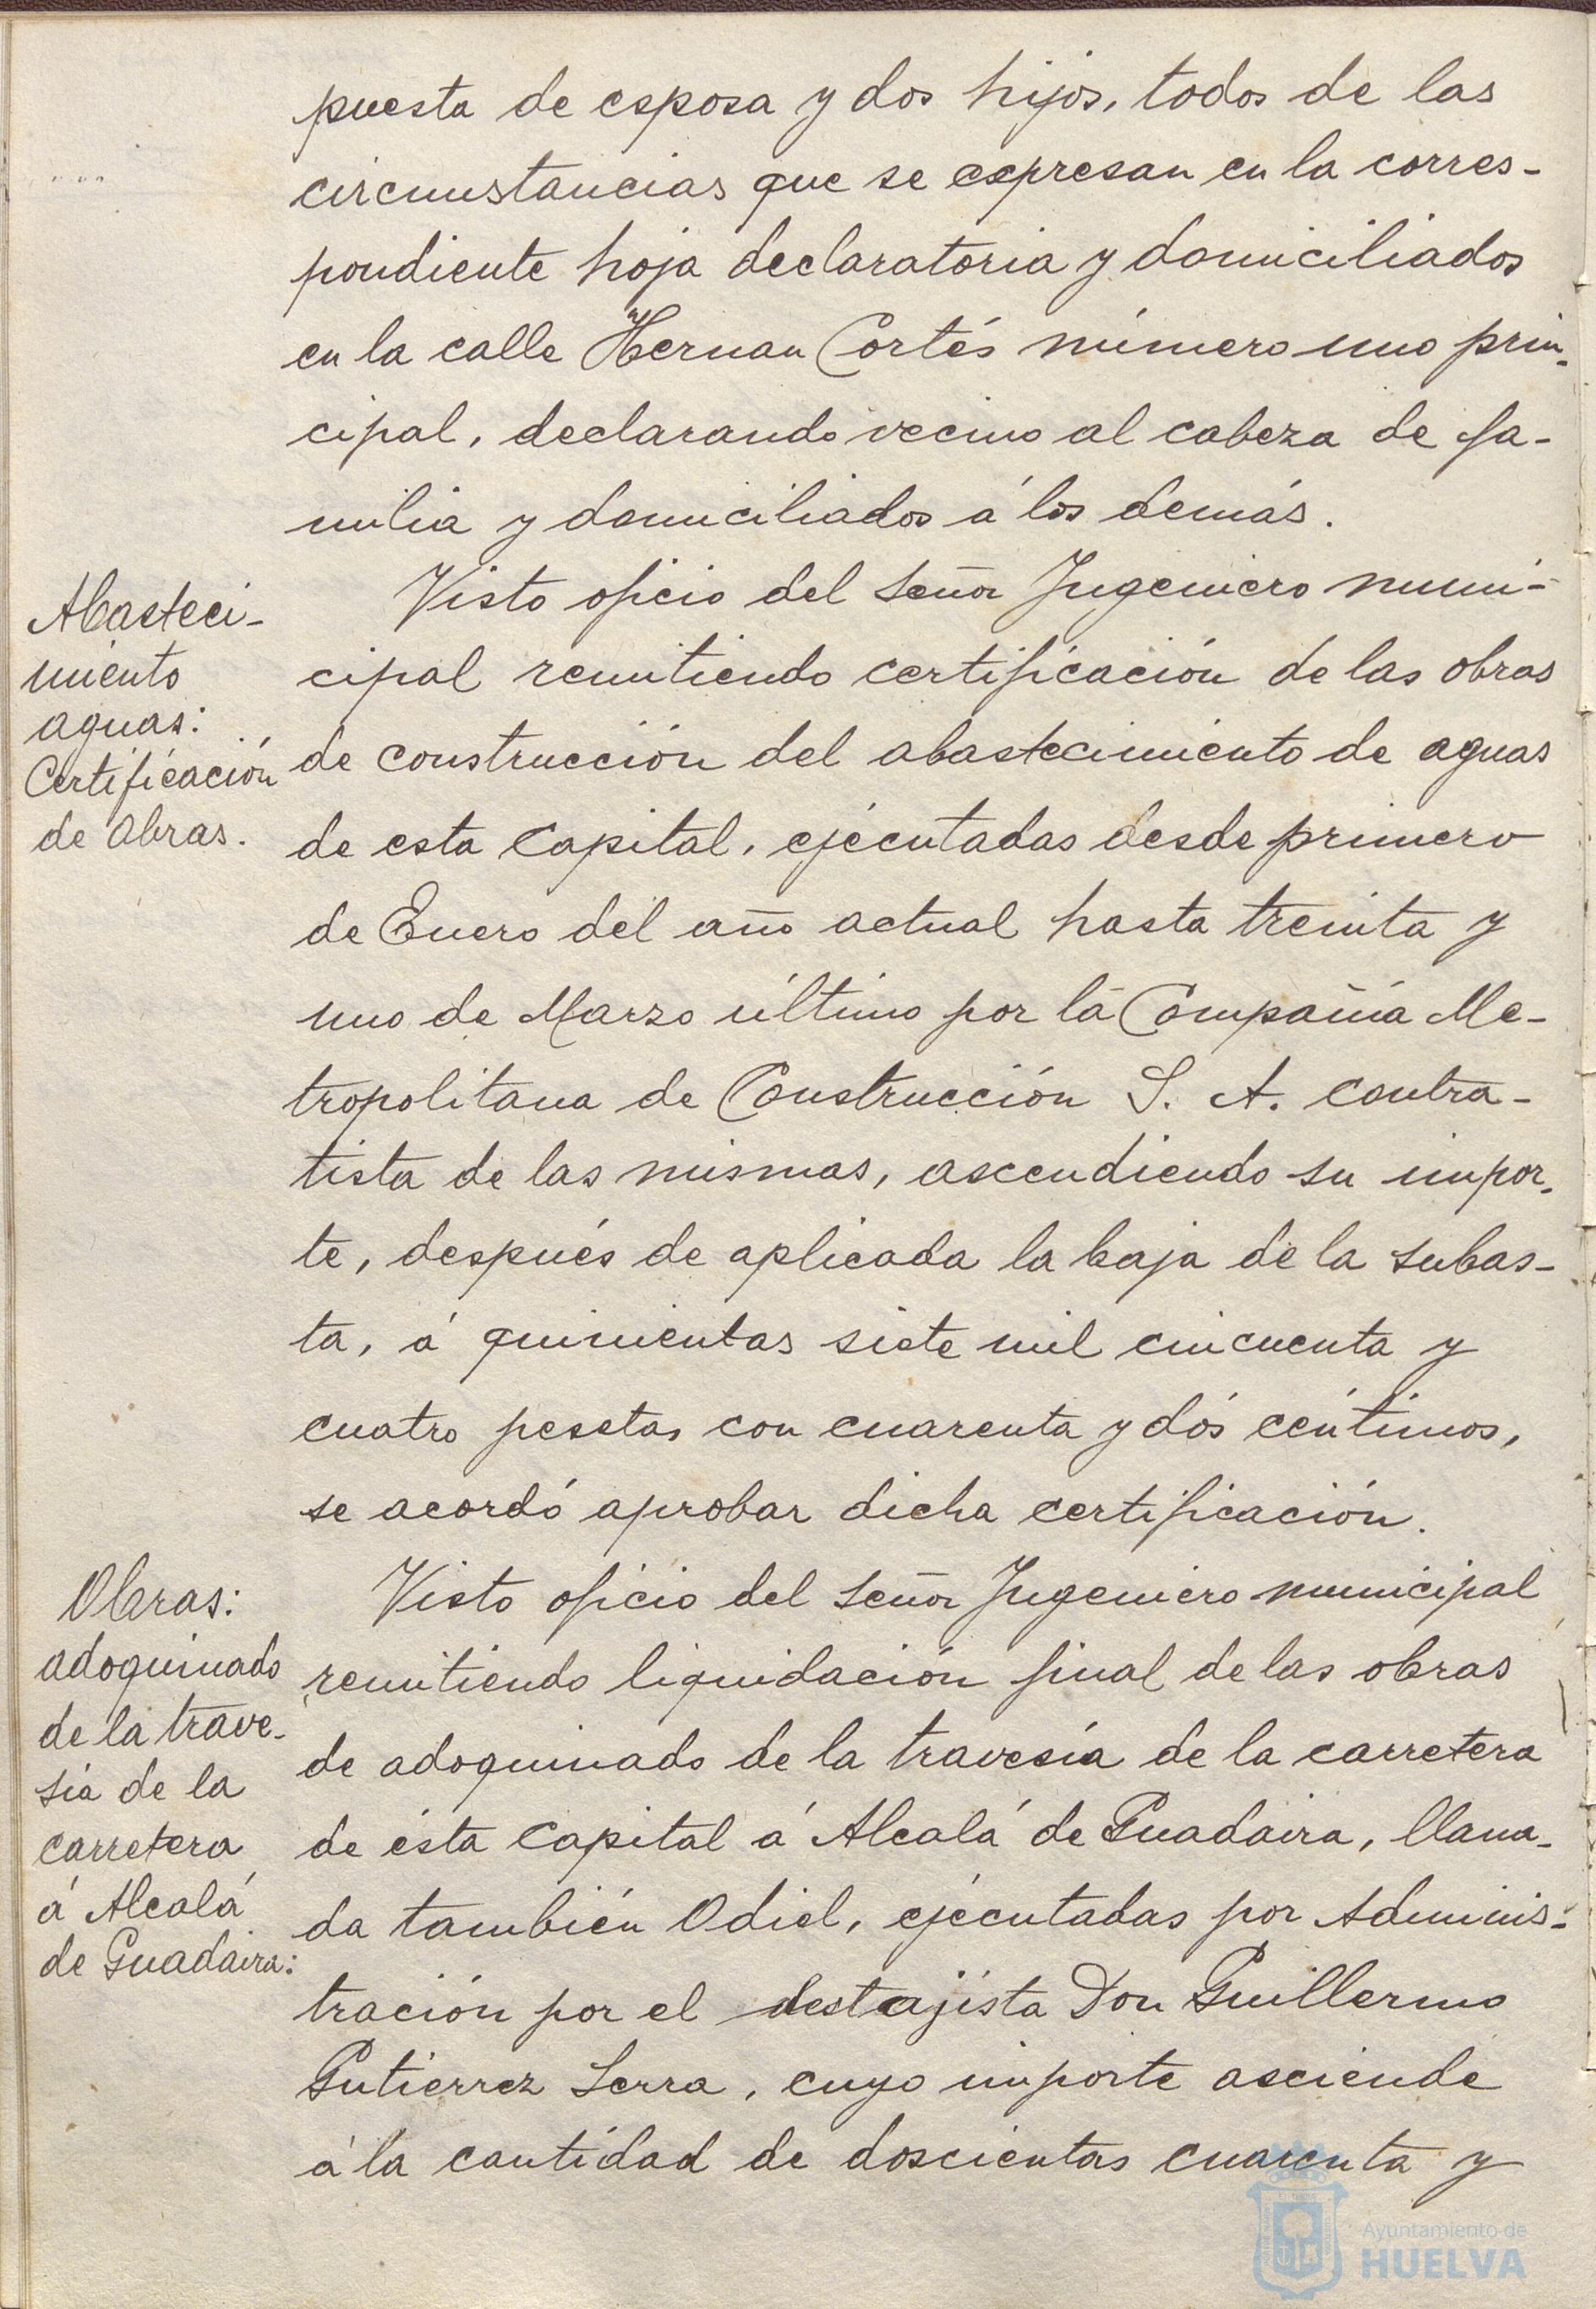 puesta de esposa y dos hijos, todos de las
circunstancias que se expresan en la corres-
pondiente hoja declaratoria y domiciliados
en la calle Hernan Cortés número uno prin-
cipal, declarando vecino al cabeza de fa-
milia y domiciliados á los demás.
Abasteci-
miento
aguas:
Certificación
de obras.
Visto oficio del Señor Ingeniero muni-
cipal remitiendo certificación de las obras
de construcción del abastecimiento de aguas
de esta Capital, ejecutadas desde primero
de Enero del año actual hasta treinta y
uno de Marzo último por la Compañia Me-
tropolitana de Construcción S. A. contra-
tista de las mismas, ascendiendo su impor-
te, después de aplicada la baja de la subas-
ta, á quinientas siete mil cincuenta y
cuatro pesetas con cuarenta y dós céntimos,
se acordó aprobar dicha certificación.
Obras:
adoquinado
de la trave-
sía de la
carretera
á Alcalá
de Guadaira:
Visto oficio del Señor Ingeniero municipal
remitiendo liquidación final de las obras
de adoquinado de la travesía de la carretera
de ésta Capital á Alcalá de Guadaira, llama-
da también Odiel, ejecutadas por Adminis-
tración por el destajista Don Guillermo
Gutierrez Serra, cuyo importe asciende
á la cantidad de doscientas cuarenta y
Ayuntamiento de
HUELVA